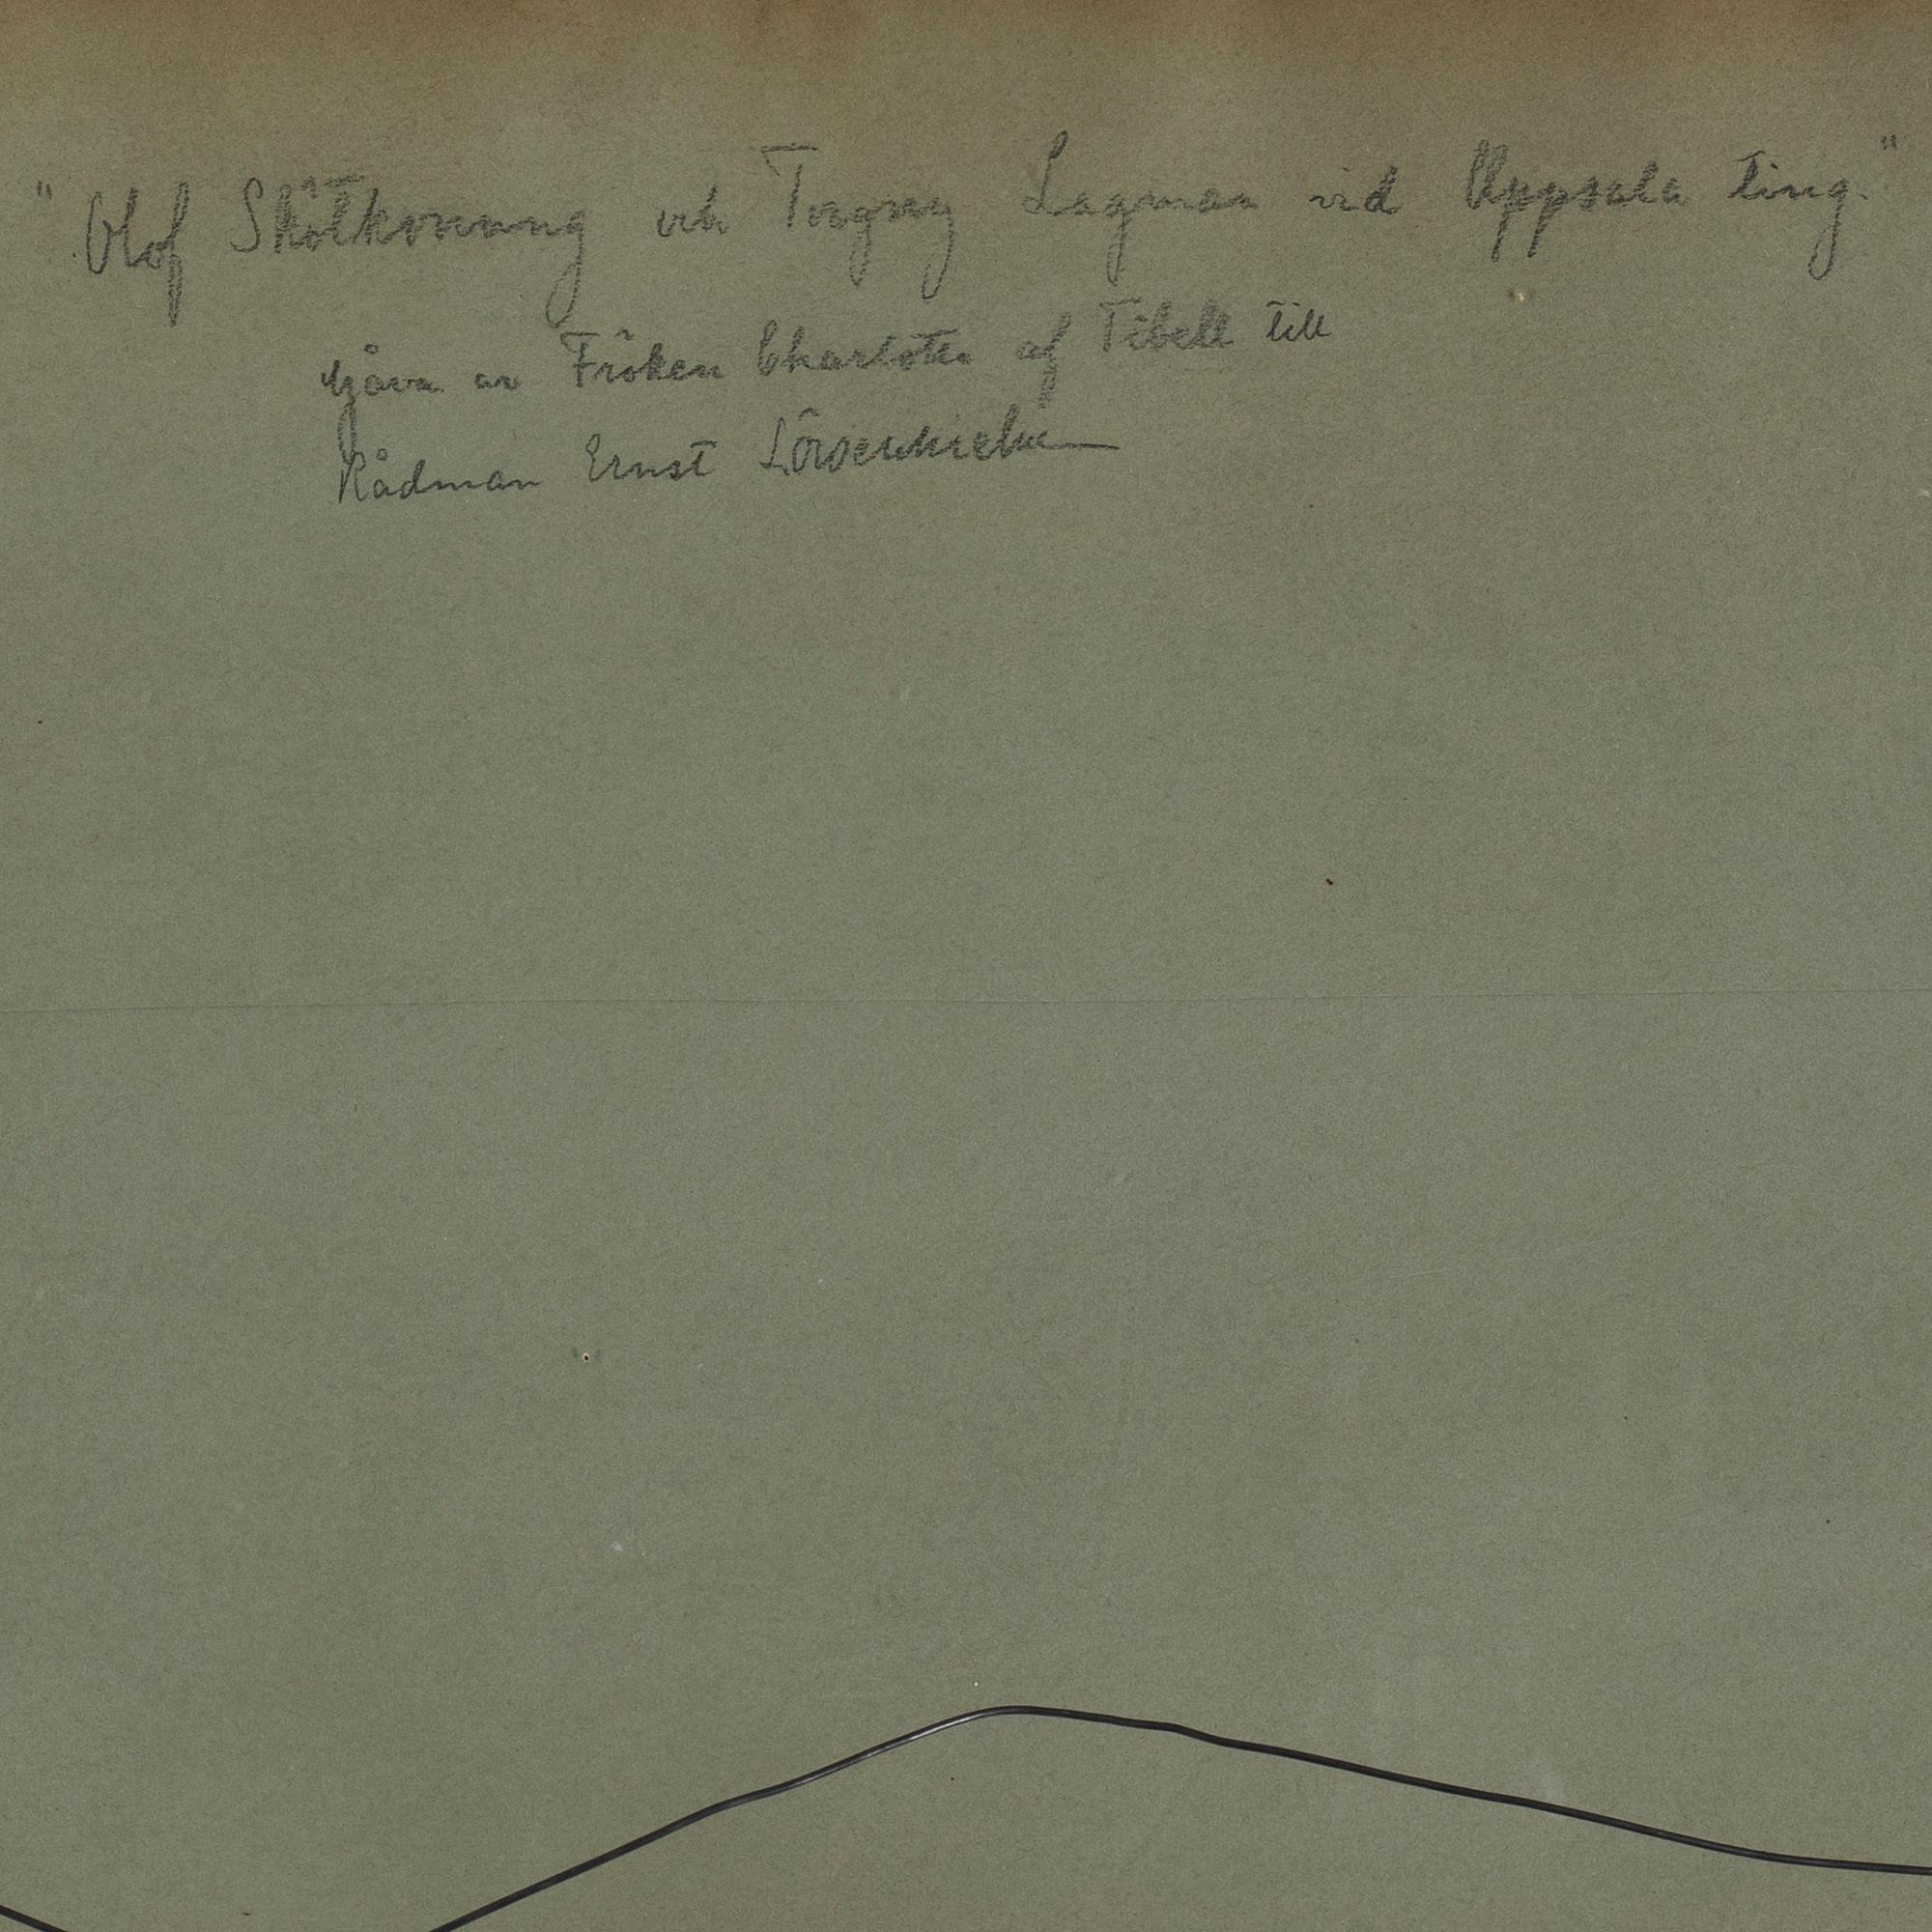 "Olof Skötkonung och Torgny Lagman vid Uppsala ting."
gåva av Fröken Charlotte af Tibell till
Rådman Ernst Löwenhielm